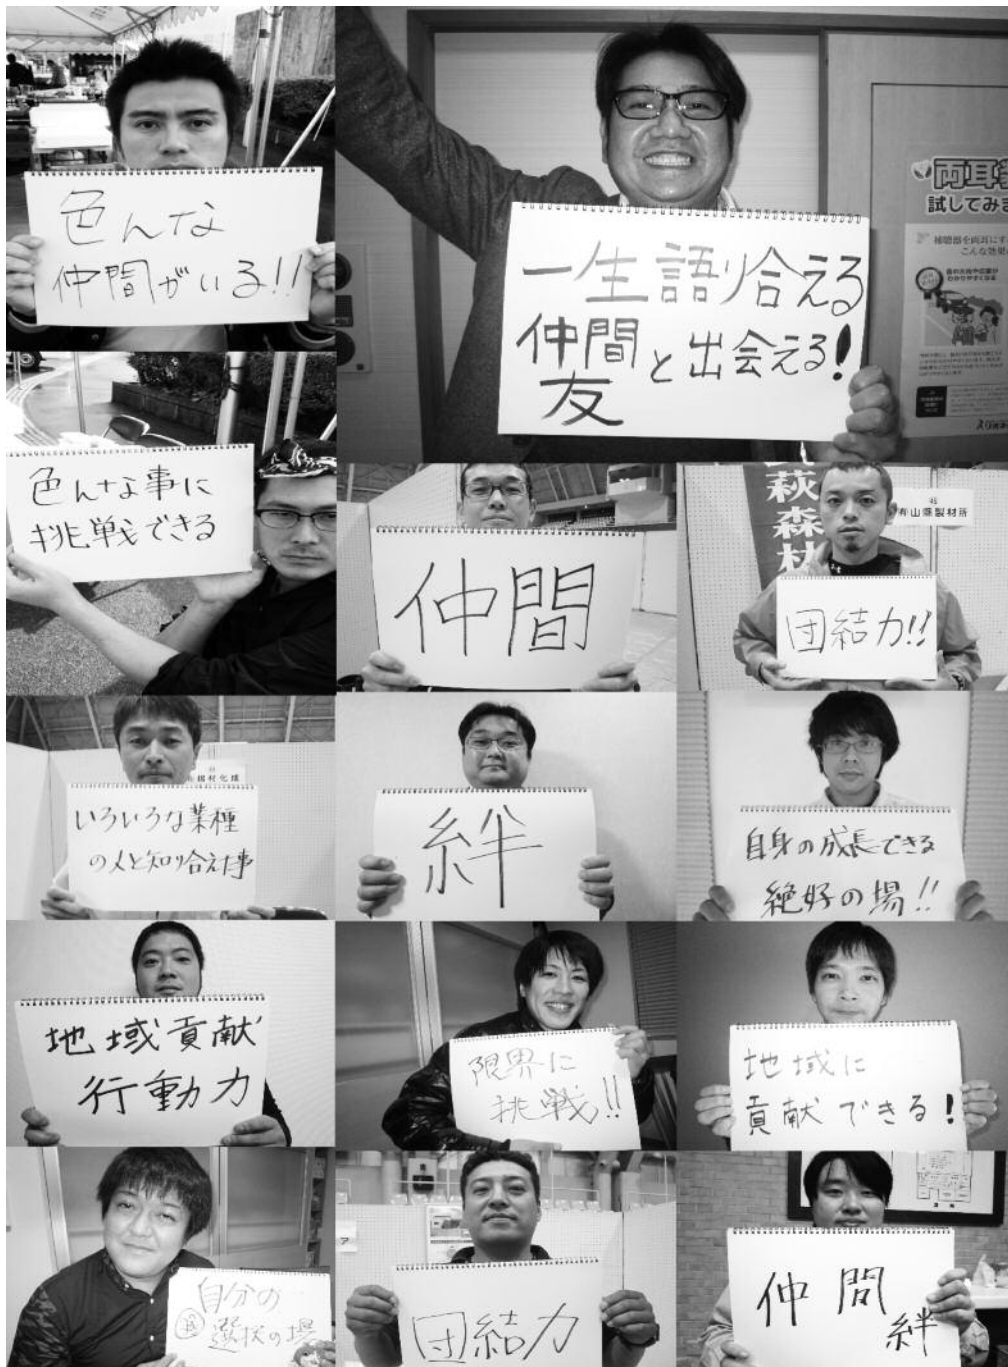 色んな
仲間がいる!!
一生語り合える
仲間と出会える!
友
両耳
試してみま
補聴器を両耳にす
こんな効果
色んな事に
挑戦できる
仲間
萩森林
団結力!!
いろいろな業種
の人と知り合えた事
絆
自身の成長できる
絶好の場!!
地域貢献
行動力
限界に
挑戦!!
地域に
貢献できる!
自分の
選択の場
ア
団結力
仲間
絆